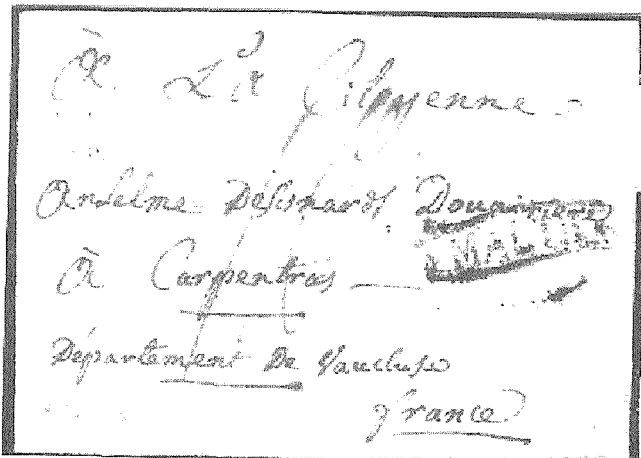 à La Citoyenne
Anselme Douairiere
à Carpentras
Département De Vaucluse
france